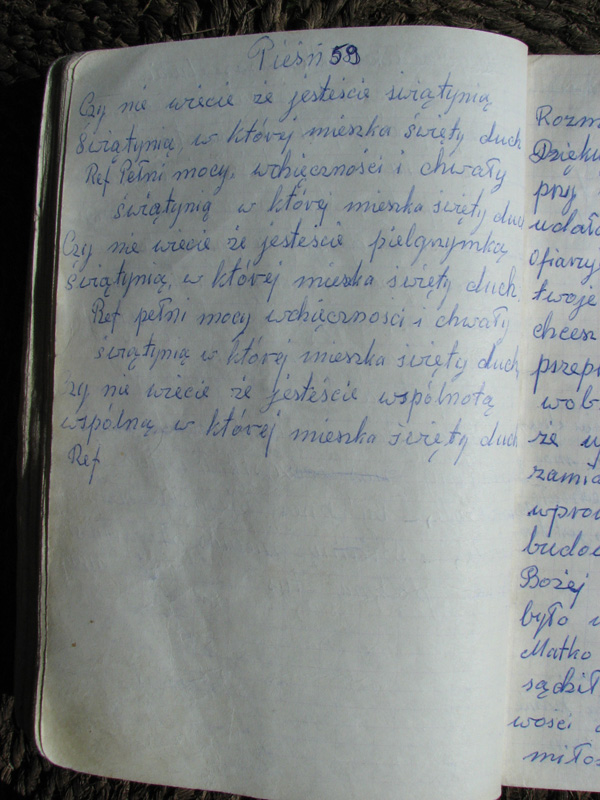 Pieśń 59
Czy nie wiecie że jesteście świątynią
Świątynią, w której mieszka święty duch
Ref Pełni mocy, wdzięczności i chwały
świątynią w której mieszka święty duch
Czy nie wiecie że jesteście pielgrzymką
świątynią, w której mieszka święty duch.
Ref pełni mocy wdzięczności i chwały
świątynią w której mieszka święty duch
Czy nie wiecie że jesteście wspólnotą
wspólną, w której mieszka święty duch
Ref
Rozm
Dzięku
przy
udało
Ofiaruj
twoje
chcesz
przep
wob
że w
zamia
wpro
budo
Bożej
było
Matko
sądził
wości
miłoś